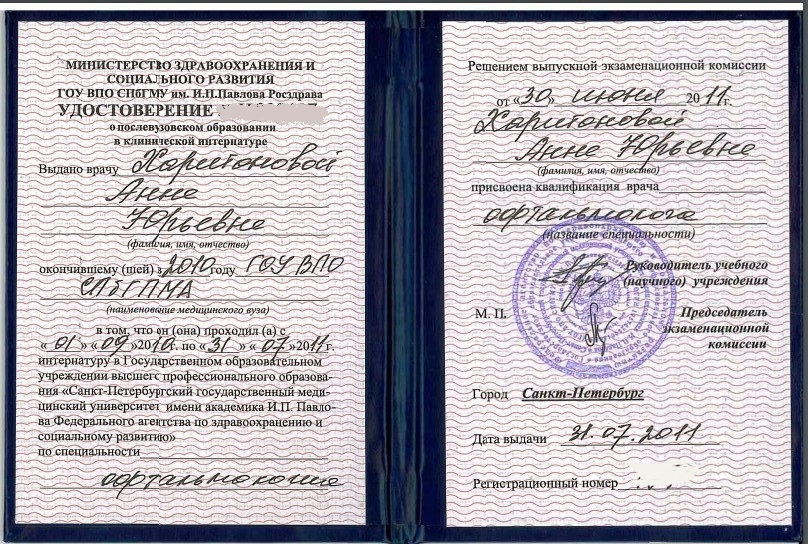 МИНИСТЕРСТВО ЗДРАВООХРАНЕНИЯ И
СОЦИАЛЬНОГО РАЗВИТИЯ
ГОУ ВПО СПбГМУ им. И.П.Павлова Росздрава
УДОСТОВЕРЕНИЕ
о послевузовском образовании
в клинической интернатуре
Выдано врачу Харитоновой
Анне
Юрьевне
(фамилия, имя, отчество)
окончившему (шей) в 2010 году ГОУ ВПО
СПбГПМА
(наименование медицинского вуза)
в том, что он (она) проходил (а) с
« 01 » « 09 »2010г. по « 31 » « 07 »2011г.
интернатуру в Государственном образовательном
учреждении высшего профессионального образова-
ния «Санкт-Петербургский государственный меди-
цинский университет имени академика И.П. Павло-
ва Федерального агентства по здравоохранению и
социальному развитию»
по специальности
офтальмология
Решением выпускной экзаменационной комиссии
от «30» июня 2011г.
Харитоновой
Анне Юрьевне
(фамилия, имя, отчество)
присвоена квалификация врача
офтальмолога
(название специальности)
Руководитель учебного
(научного) учреждения
М. П.
Председатель
экзаменационной
комиссии
Город Санкт-Петербург
Дата выдачи 31.07.2011
Регистрационный номер